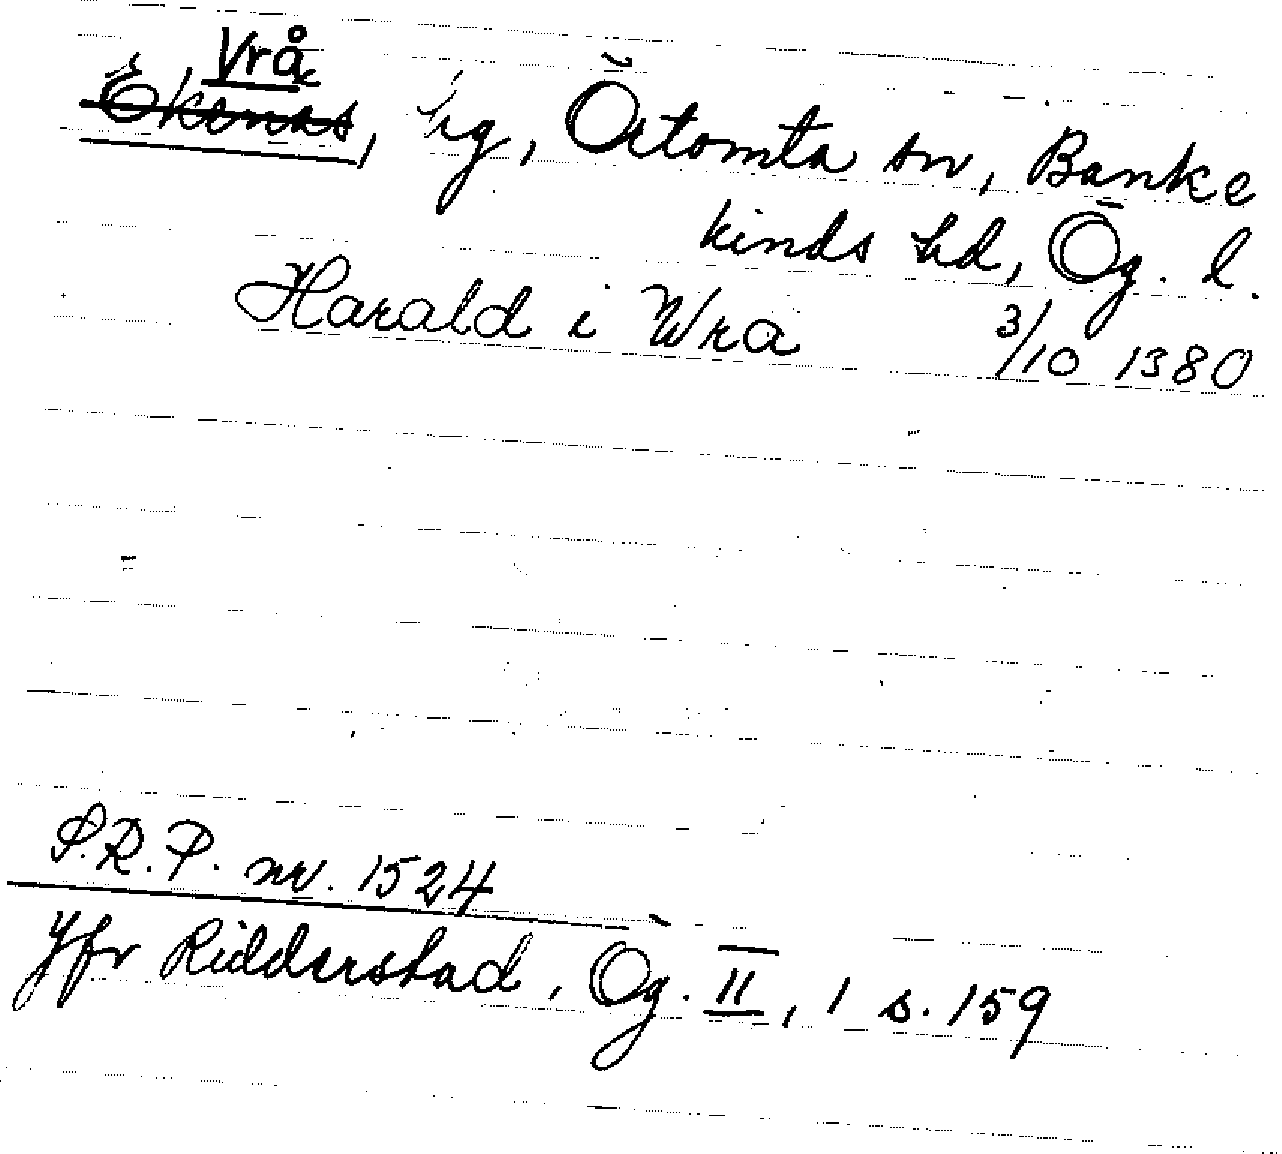 Vrå
Ekenäs, hg, Örtomta sn, Banke
kinds hd, Ög. l.
Harald i Wra 3/10 1380
S.R.P. nr. 1524
Jfr Ridderstad, Ög. II, 1 s. 159